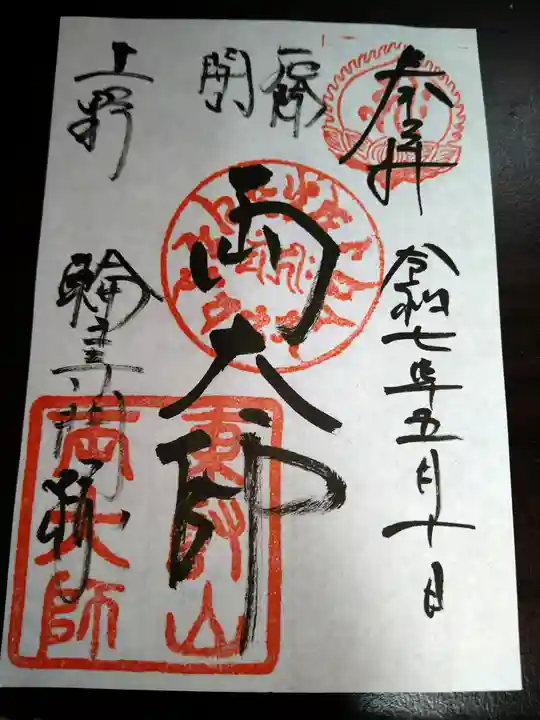 奉拝
令和七年五月十日
両大師
開
上野
輪王寺門跡
東叡山
両大師